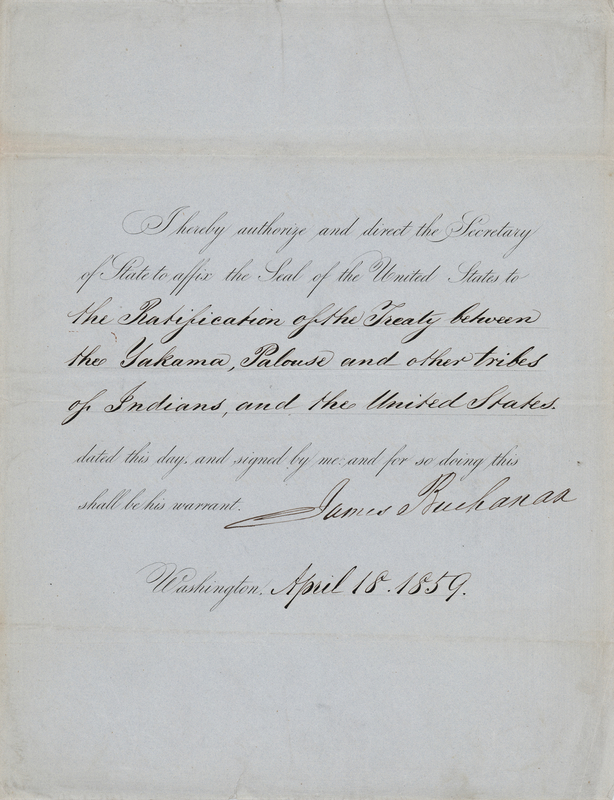 I hereby authorize and direct the Secretary
of State to affix the Seal of the United States to
the Ratification of the Treaty between
the Yakama, Palouse and other tribes
of Indians, and the United States.
dated this day, and signed by me: and for so doing this
shall be his warrant.
James Buchanan
Washington, April 18. 1859.